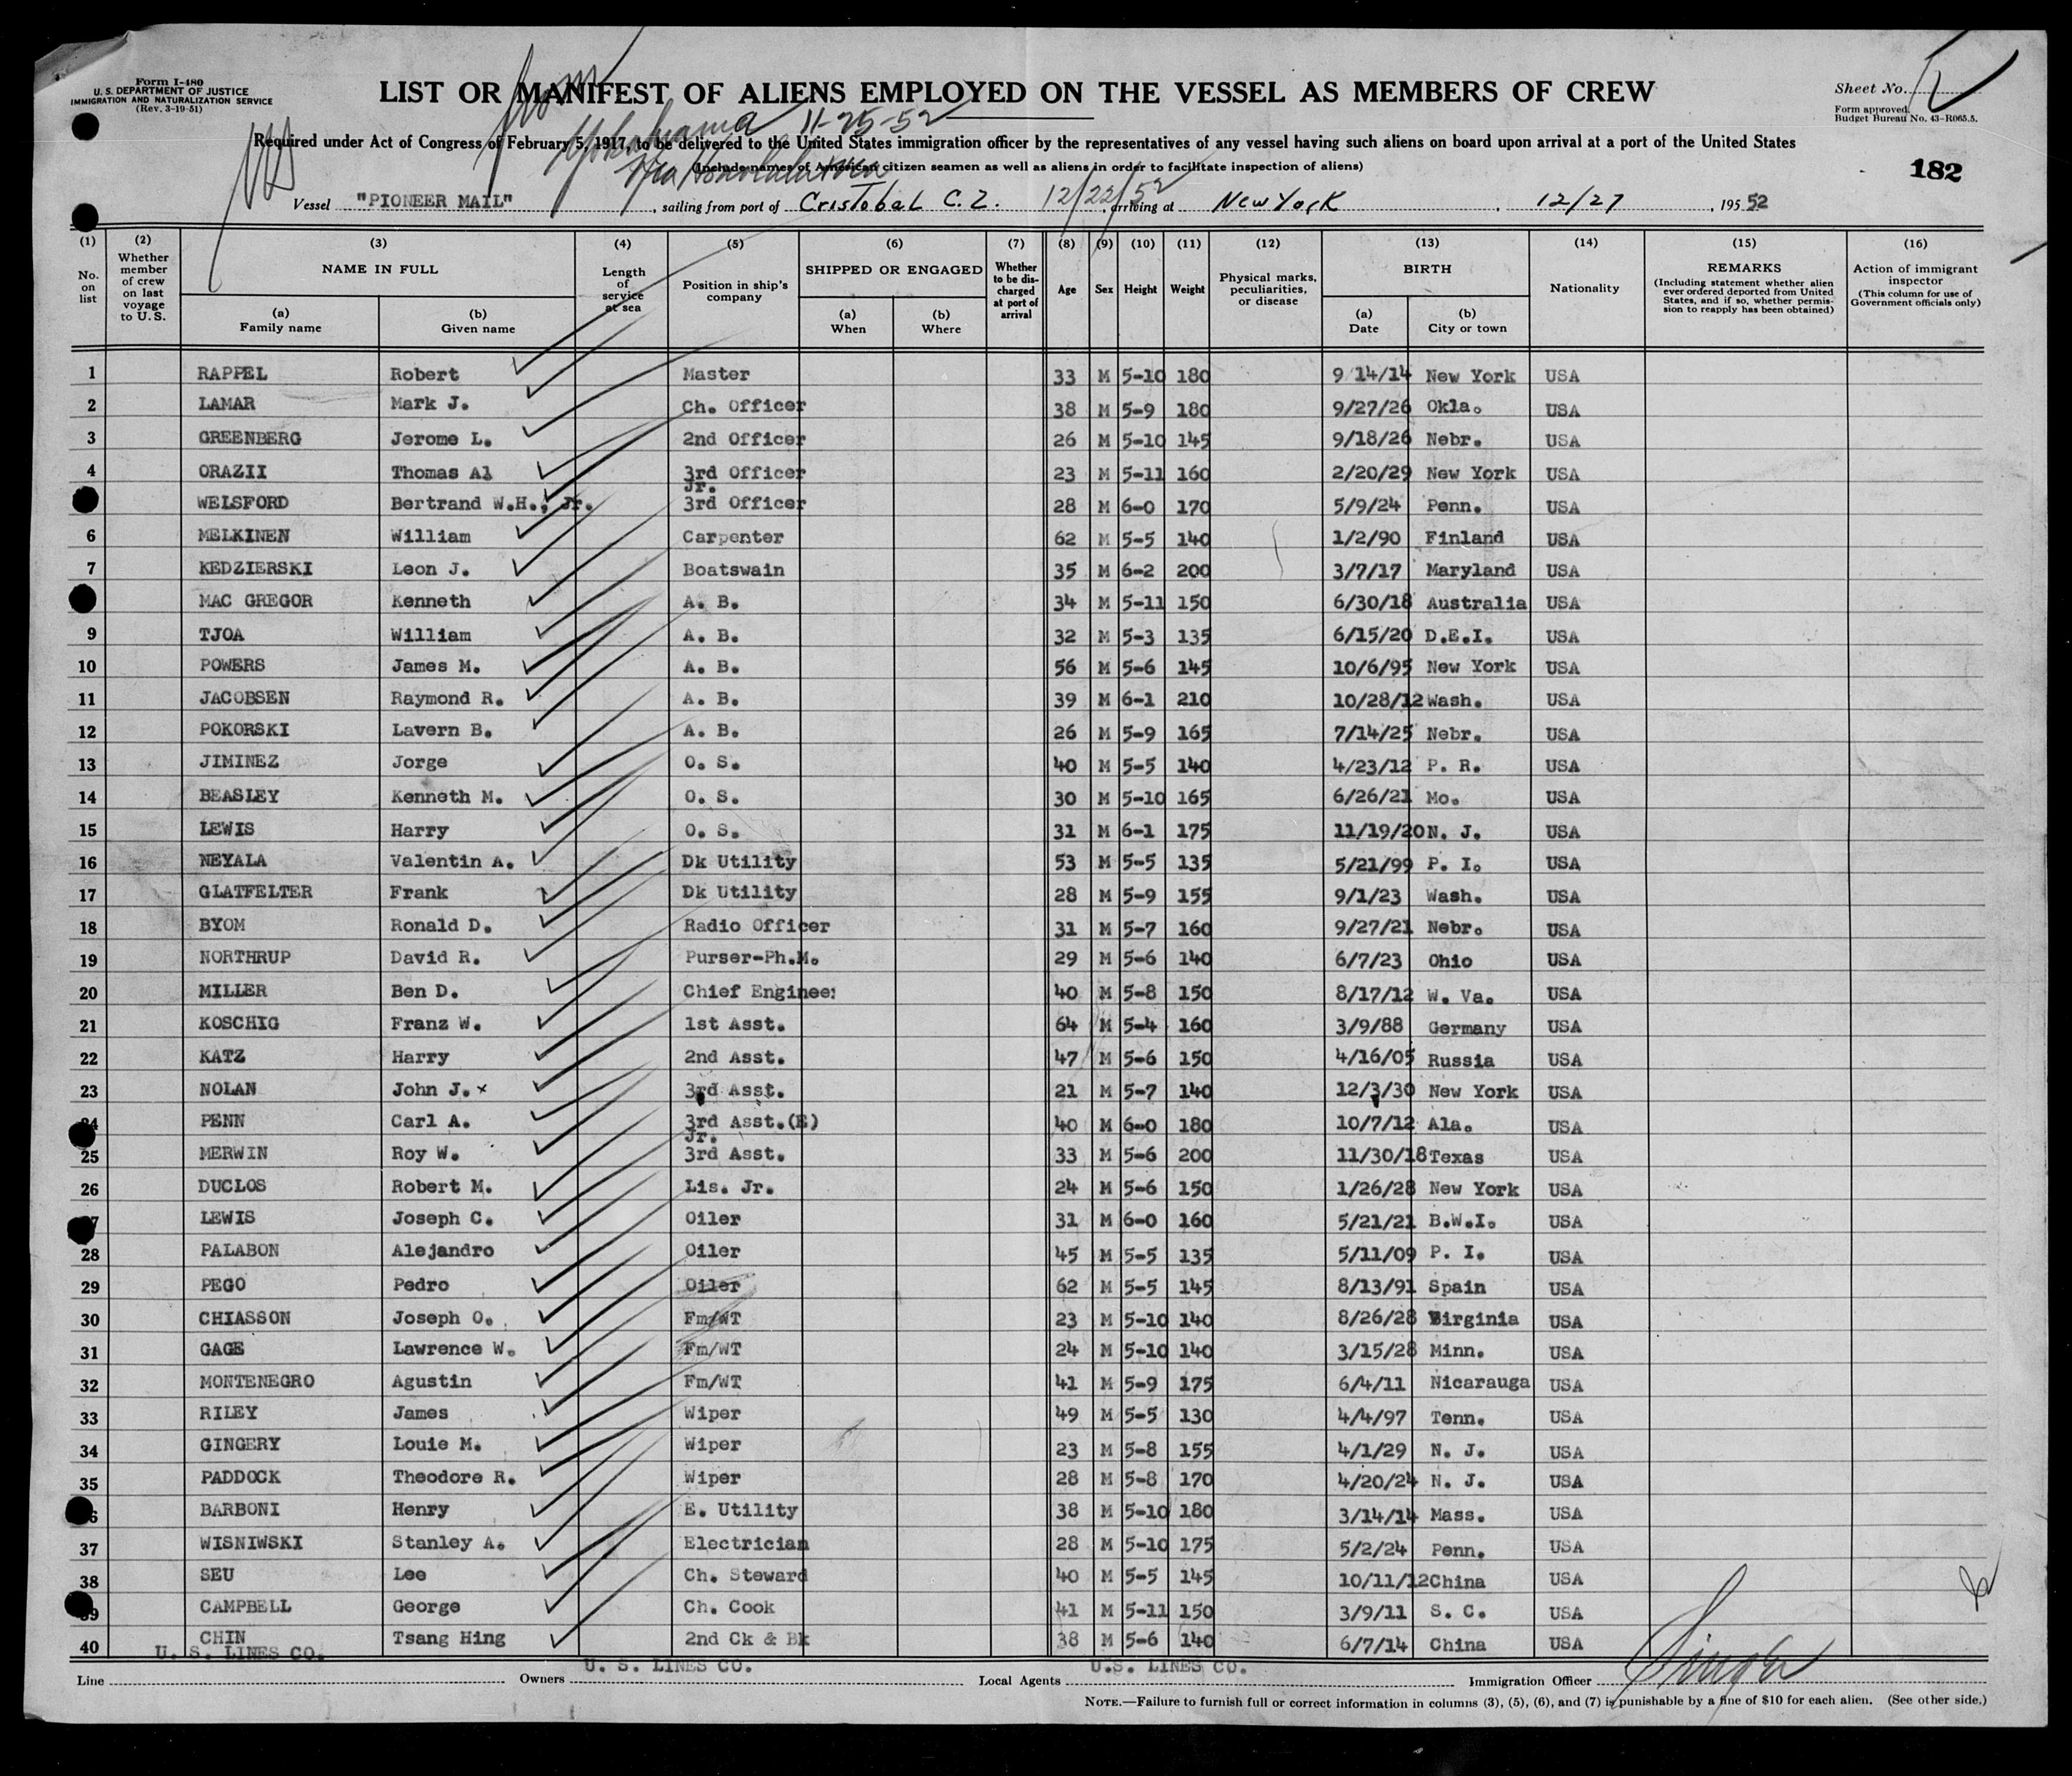 Form I-480
U. S. DEPARTMENT OF JUSTICE
IMMIGRATION AND NATURALIZATION SERVICE
(Rev. 3-19-51)
LIST OR MANIFEST OF ALIENS EMPLOYED ON THE VESSEL AS MEMBERS OF CREW
Sheet No.
Form approved.
Budget Bureau No. 43-R065.5.
from
Yokohama 11-25-52
Required under Act of Congress of February 5, 1917, to be delivered to the United States immigration officer by the representatives of any vessel having such aliens on board upon arrival at a port of the United States
Via Honolulu
(Include names of American citizen seamen as well as aliens in order to facilitate inspection of aliens)
182
Vessel "PIONEER MAIL", sailing from port of Cristobal C.Z. 12/22/52, arriving at New York, 12/27, 195 52
(1) (2) (3) (4) (5) (6) (7) (8) (9) (10) (11) (12) (13) (14) (15) (16)
No. on list
Whether member of crew on last voyage to U. S.
NAME IN FULL
(a) Family name
(b) Given name
Length of service at sea
Position in ship's company
SHIPPED OR ENGAGED
(a) When
(b) Where
Whether to be discharged at port of arrival
Age
Sex
Height
Weight
Physical marks, peculiarities, or disease
BIRTH
(a) Date
(b) City or town
Nationality
REMARKS
(Including statement whether alien ever ordered deported from United States, and if so, whether permission to reapply has been obtained)
Action of immigrant inspector
(This column for use of Government officials only)
1 RAPPEL Robert Master 33 M 5-10 180 9 14/14 New York USA
2 LAMAR Mark J. Ch. Officer 38 M 5-9 180 9/27/26 Okla. USA
3 GREENBERG Jerome L. 2nd Officer 26 M 5-10 145 9/18/26 Nebr. USA
4 ORAZII Thomas Al 3rd Officer 23 M 5-11 160 2/20/29 New York USA
WELSFORD Bertrand W.H., Jr. Jr. 3rd Officer 28 M 6-0 170 5/9/24 Penn. USA
6 MELKINEN William Carpenter 62 M 5-5 140 1/2/90 Finland USA
7 KEDZIERSKI Leon J. Boatswain 35 M 6-2 200 3/7/17 Maryland USA
MAC GREGOR Kenneth A. B. 34 M 5-11 150 6/30/18 Australia USA
9 TJOA William A. B. 32 M 5-3 135 6/15/20 D.E.I. USA
10 POWERS James M. A. B. 56 M 5-6 145 10/6/95 New York USA
11 JACOBSEN Raymond R. A. B. 39 M 6-1 210 10/28/12 Wash. USA
12 POKORSKI Lavern B. A. B. 26 M 5-9 165 7/14/25 Nebr. USA
13 JIMINEZ Jorge O. S. 40 M 5-5 140 4/23/12 P. R. USA
14 BEASLEY Kenneth M. O. S. 30 M 5-10 165 6/26/21 Mo. USA
15 LEWIS Harry O. S. 31 M 6-1 175 11/19/20 N. J. USA
16 NEYALA Valentin A. Dk Utility 53 M 5-5 135 5/21/99 P. I. USA
17 GLATFELTER Frank Dk Utility 28 M 5-9 155 9/1/23 Wash. USA
18 BYOM Ronald D. Radio Officer 31 M 5-7 160 9/27/21 Nebr. USA
19 NORTHRUP David R. Purser-Ph.M. 29 M 5-6 140 6/7/23 Ohio USA
20 MILLER Ben D. Chief Engineer 40 M 5-8 150 8/17/12 W. Va. USA
21 KOSCHIG Franz W. 1st Asst. 64 M 5-4 160 3/9/88 Germany USA
22 KATZ Harry 2nd Asst. 47 M 5-6 150 4/16/05 Russia USA
23 NOLAN John J. x 3rd Asst. 21 M 5-7 140 12/3/30 New York USA
24 PENN Carl A. 3rd Asst.(E) 40 M 6-0 180 10/7/12 Ala. USA
25 MERWIN Roy W. Jr. 3rd Asst. 33 M 5-6 200 11/30/18 Texas USA
26 DUCLOS Robert M. Lis. Jr. 24 M 5-6 150 1/26/28 New York USA
7 LEWIS Joseph C. Oiler 31 M 6-0 160 5/21/21 B.W.I. USA
28 PALABON Alejandro Oiler 45 M 5-5 135 5/11/09 P. I. USA
29 PEGO Pedro Oiler 62 M 5-5 145 8/13/91 Spain USA
30 CHIASSON Joseph O. Fm/WT 23 M 5-10 140 8/26/28 Virginia USA
31 GAGE Lawrence W. Fm/WT 24 M 5-10 140 3/15/28 Minn. USA
32 MONTENEGRO Agustin Fm/WT 41 M 5-9 175 6/4/11 Nicarauga USA
33 RILEY James Wiper 49 M 5-5 130 4/4/97 Tenn. USA
34 GINGERY Louie M. Wiper 23 M 5-8 155 4/1/29 N. J. USA
35 PADDOCK Theodore R. Wiper 28 M 5-8 170 4/20/24 N. J. USA
6 BARBONI Henry E. Utility 38 M 5-10 180 3/14/14 Mass. USA
37 WISNIWSKI Stanley A. Electrician 28 M 5-10 175 5/2/24 Penn. USA
38 SEU Lee Ch. Steward 40 M 5-5 145 10/11/12 China USA
39 CAMPBELL George Ch. Cook 41 M 5-11 150 3/9/11 S. C. USA
40 CHIN Tsang Hing 2nd Ck & Bk 38 M 5-6 140 6/7/14 China USA
Line U. S. LINES CO. Owners U. S. LINES CO. Local Agents U.S. LINES CO. Immigration Officer
NOTE.—Failure to furnish full or correct information in columns (3), (5), (6), and (7) is punishable by a fine of $10 for each alien. (See other side.)